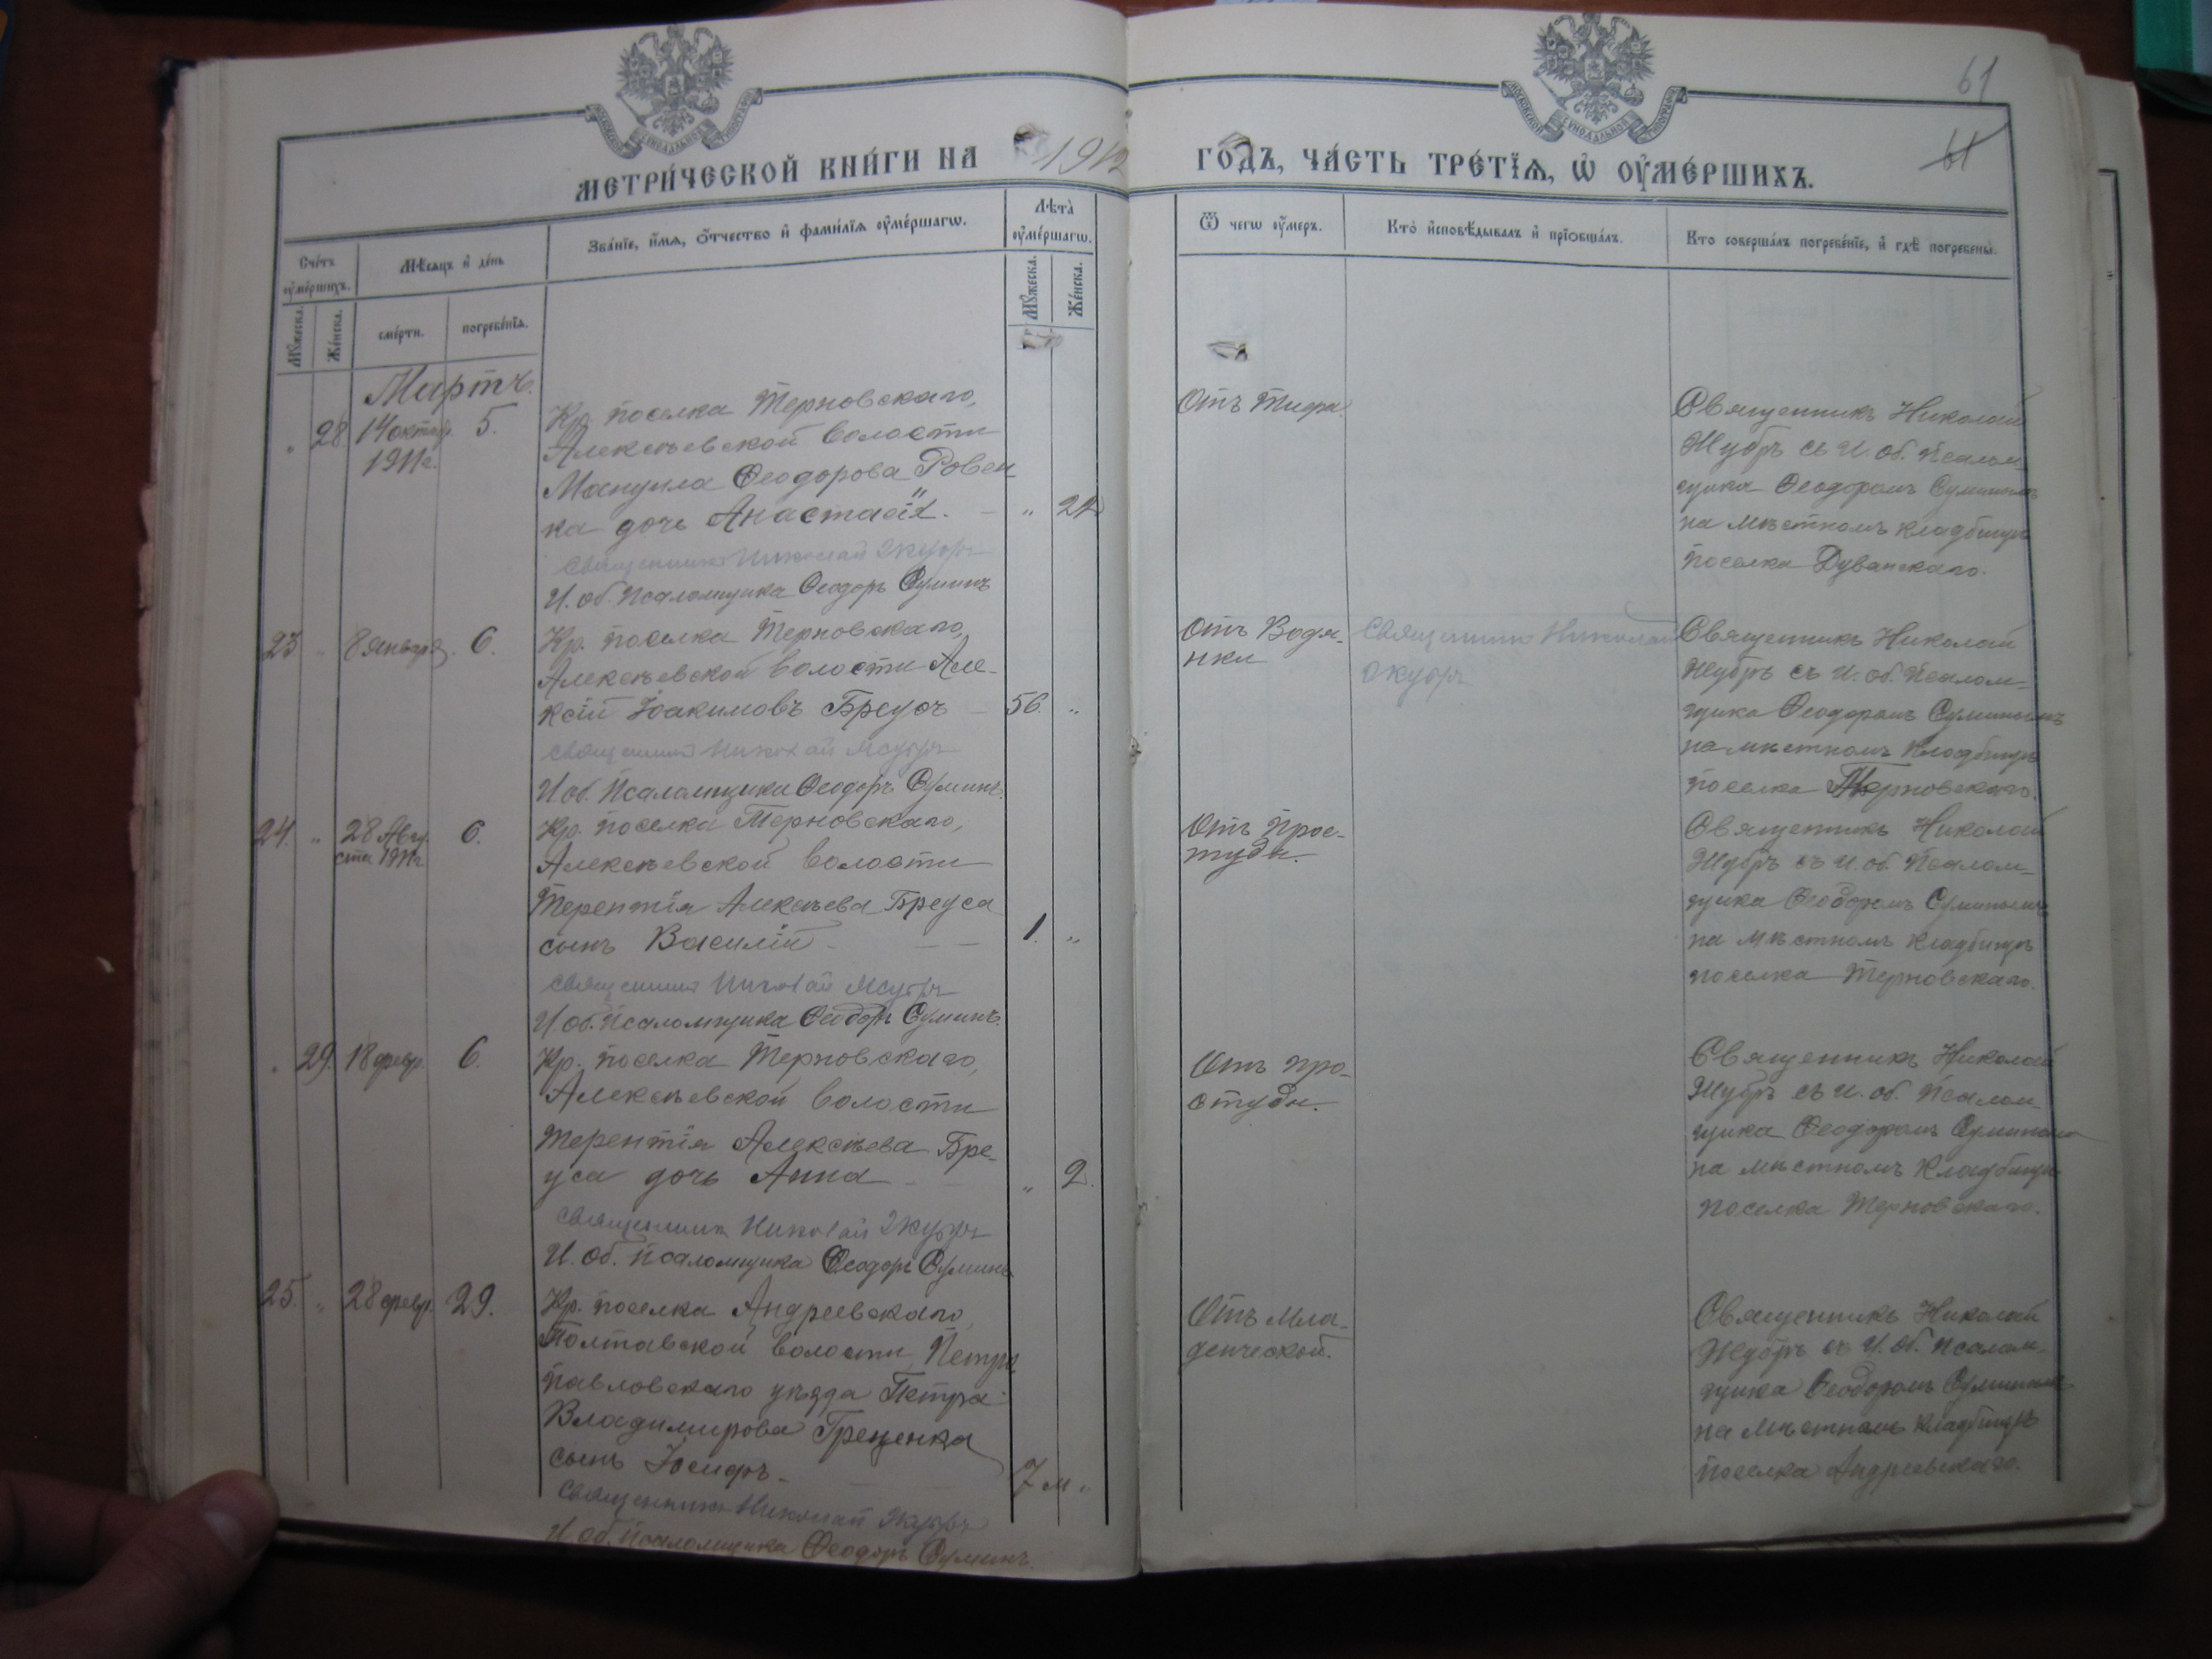 МОСКОВСКОЙ СѴНОДАЛЬНОЙ ТИПОГРАФІИ
МОСКОВСКОЙ СѴНОДАЛЬНОЙ ТИПОГРАФІИ
61
61
МЕТРИ́ЧЕСКОЙ КНИ́ГИ НА 1912
ГОДЪ, ЧА́СТЬ ТРЕ́ТІѦ, Ѡ ОУМЕ́РШИХЪ.
Сче́тъ оуме́ршихъ.
Мѣсяцъ и де́нь
Зва́нїе, и́мѧ, о́тчество и фами́лїѧ оуме́ршагѡ.
Лѣта̀ оуме́ршагѡ.
Ѿ чегѡ оу́меръ.
Кто̀ исповѣ́дывалъ и прїѡбща́лъ.
Кто соверша́лъ погребе́нїе, и гдѣ̀ погребены̀.
Мꙋ́жеска.
Же́нска.
сме́рти.
погребе́нїѧ.
Мꙋ́жеска.
Же́нска.
Мартъ.
„ 28 14 октяб. 1911 г. 5.
Кр. поселка Терновскаго,
Алексѣевской волости
Мануила Ѳеодорова Ровен
ка дочь Анастасія. „
Священникъ Николай Жубръ
И. об. псаломщика Ѳеодоръ Суминъ
Отъ Тифа.
Священникъ Николай
Жубръ съ И. об. Псалом-
щика Ѳеодоромъ Суминымъ
на мѣстномъ кладбищѣ
поселка Дуванскаго.
23 „ 8 января. 6.
Кр. поселка Терновскаго,
Алексѣевской волости Але-
ксій Іоакимовъ Бреусъ 56. „
Священникъ Николай Жубръ
И об. Псаломщика Ѳеодоръ Суминъ.
Отъ Водя-
нки
Священникъ Николай
Жубръ
Священникъ Николай
Жубръ съ И. об. Псалом-
щика Ѳеодоромъ Суминымъ
на мѣстномъ кладбищѣ
поселка Терновскаго.
24. „ 28 Авгу-
ста 1911 г. 6.
Кр. поселка Терновскаго,
Алексѣевской волости
Терентія Алексѣева Бреуса
сынъ Василій 1. „
Священникъ Николай Жубръ
И. об. Псаломщика Ѳеодоръ Суминъ.
Отъ Прос-
туды.
Священникъ Николай
Жубръ съ И. об. Псалом-
щика Ѳеодоромъ Суминымъ
на мѣстномъ кладбищѣ
поселка Терновскаго.
„ 29. 18 февр. 6.
Кр. поселка Терновскаго,
Алексѣевской волости
Терентія Алексѣева Бре-
уса дочь Анна „ 2.
Священникъ Николай Жубръ
И. об. псаломщика Ѳеодоръ Суминъ
Отъ про-
студы.
Священникъ Николай
Жубръ съ И. об. Псалом-
щика Ѳеодоромъ Суминымъ
на мѣстномъ кладбищѣ
поселка Терновскаго.
25. „ 28 февр. 29.
Кр. поселка Андреевскаго,
Полтавской волости, Петро
павловскаго уѣзда Петра
Владимирова Греценка
сынъ Іосифъ 7 м „
Священникъ Николай Жубръ
И об. Псаломщика Ѳеодоръ Суминъ
Отъ Мла-
денческой.
Священникъ Николай
Жубръ съ И. об. Псалом-
щика Ѳеодоромъ Суминымъ
на мѣстномъ кладбищѣ
поселка Андреевскаго.